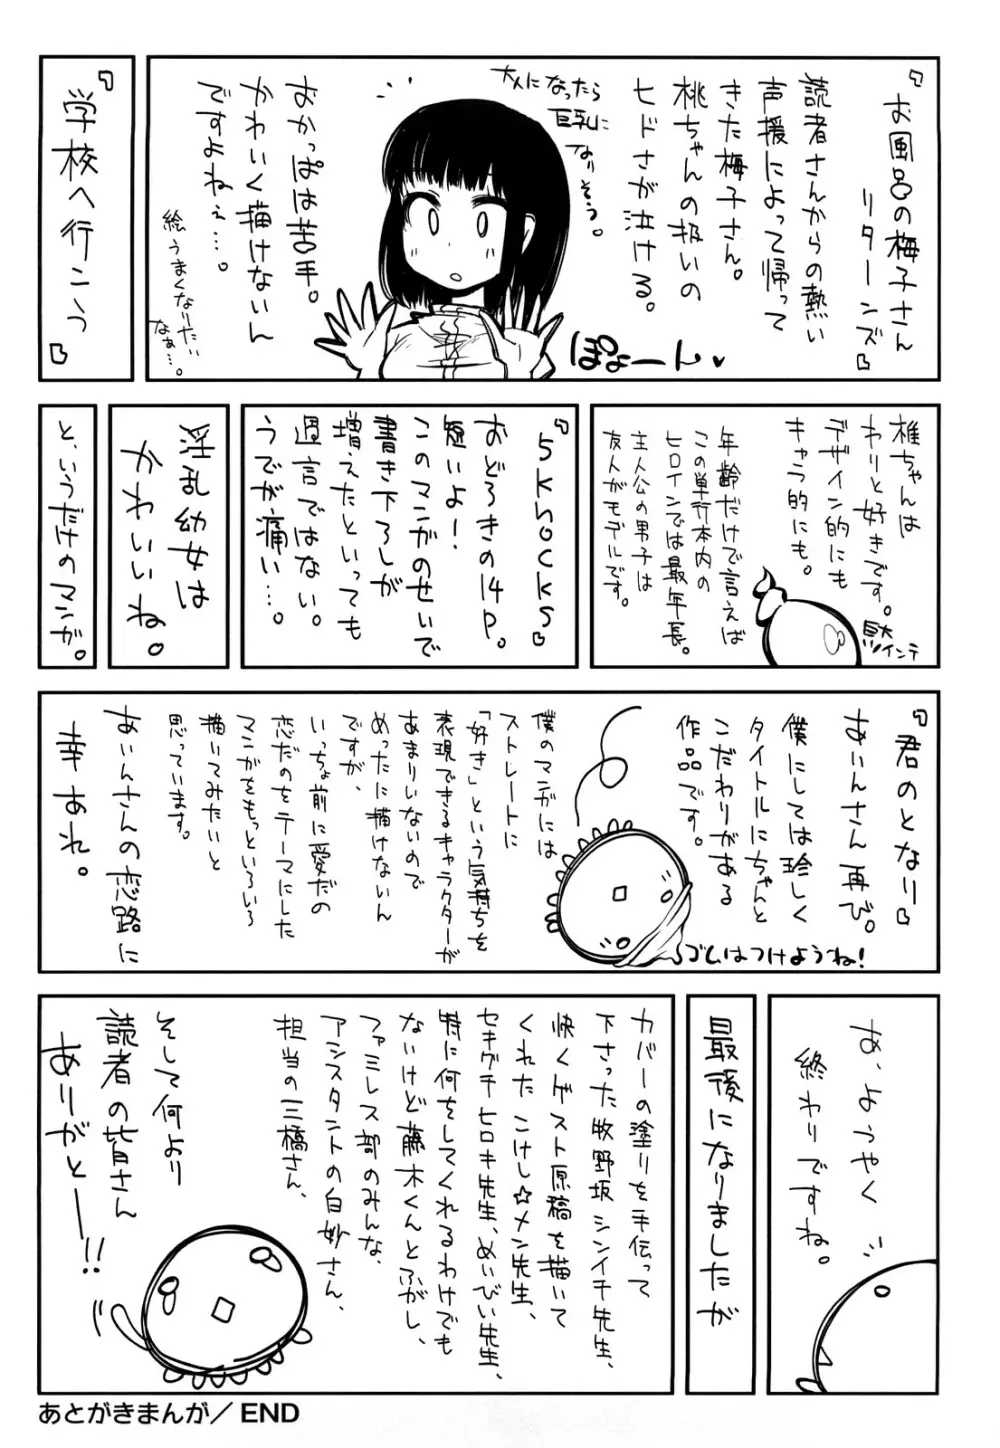 『お風呂の梅子さん
リターンズ』
読者さんからの熱い
声援によって帰って
きた梅子さん。
桃ちゃんの扱いの
ヒドさが泣ける。
大人になったら
巨乳に
なりそう。
ぽよーん♥
おかっぱは苦手。
かわいく描けないん
ですよねぇ…。
絵うまくなりたい
なぁ…。
『学校へ行こう』
椎ちゃんは
わりと好きです。
デザイン的にも
キャラ的にも。
年齢だけで言えば
この単行本内の
ヒロインでは最年長。
主人公の男子は
友人がモデルです。
巨大
ツインテ
『5knocks』
おどろきの14P。
短いよ!
このマンガのせいで
書き下ろしが
増えたといっても
過言ではない。
うでが痛い…。
淫乱幼女は
かわいいね。
と、いうだけのマンガ。
『君のとなり』
あいんさん再び。
僕にしては珍しく
タイトルにちゃんと
こだわりがある
作品です。
ゴムはつけようね!
僕のマンガには
ストレートに
「好き」という気持ちを
表現できるキャラクターが
あまりいないので
めったに描けないん
ですが、
いっちょ前に愛だの
恋だのをテーマにした
マンガをもっといろいろ
描いてみたいと
思っています。
あいんさんの恋路に
幸あれ。
あ、ようやく
終わりですね。
最後になりましたが
カバーの塗りを手伝って
下さった牧野坂シンイチ先生、
快くゲスト原稿を描いて
くれたこけし☆メン先生、
セキグチヒロキ先生、めいびい先生、
特に何をしてくれるわけでも
ないけど藤木くんとふがし、
ファミレス部のみんな、
アシスタントの白妙さん、
担当の三橋さん、
そして何より
読者の皆さん
ありがとーー!!
あとがきまんが／END